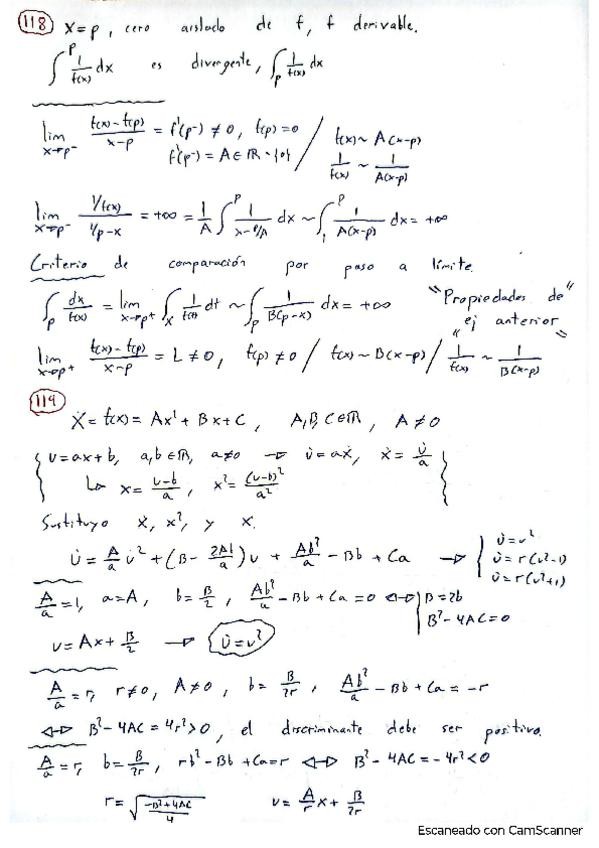 118 x=p, cero aislado de f, f derivable.
∫^p 1/f(x) dx es divergente, ∫_p 1/f(x) dx
lim x→p⁻ (f(x)-f(p))/(x-p) = f'(p⁻) ≠ 0, f(p)=0 / f(x) ~ A(x-p)
f'(p⁻) = A ∈ ℝ - {0} / 1/f(x) ~ 1/(A(x-p))
lim x→p⁻ (1/f(x))/(1/p-x) = +∞ = 1/A ∫^p 1/(x-p/A) dx ~ ∫^p 1/(A(x-p)) dx = +∞
Criterio de comparación por paso a límite.
∫_p dx/f(x) = lim x→p⁺ ∫_x 1/f(x) dt ~ ∫_p 1/(B(p-x)) dx = +∞ "Propiedades de"
"ej anterior"
lim x→p⁺ (f(x)-f(p))/(x-p) = L ≠ 0, f(p) ≠ 0 / f(x) ~ B(x-p) / 1/f(x) ~ 1/(B(x-p))
119
ẋ = f(x) = Ax² + Bx + C, A,B,C ∈ ℝ, A ≠ 0
{ u=ax+b, a,b ∈ ℝ, a≠0 → u̇ = aẋ, ẋ = u̇/a }
↳ x = (u-b)/a, x² = (u-b)²/a²
Sustituyo ẋ, x², y x.
u̇ = A/a u² + (B - 2Ab/a)u + Ab²/a - Bb + Ca → { u̇=u²
u̇=r(u²-1)
u̇=r(u²+1)
A/a = 1, a=A, b=B/2, Ab²/a - Bb + Ca = 0 ⟷ { B=2b
B²-4AC=0
u = Ax + B/2 → u̇=u²
A/a = r, r≠0, A≠0, b = B/2r, Ab²/a - Bb + Ca = -r
⟷ B²-4AC = 4r² > 0, el discriminante debe ser positivo.
A/a = r, b = B/2r, rb² - Bb + Ca = r ⟷ B²-4AC = -4r² < 0
r = √((-B²+4AC)/4) u = A/r x + B/2r
Escaneado con CamScanner